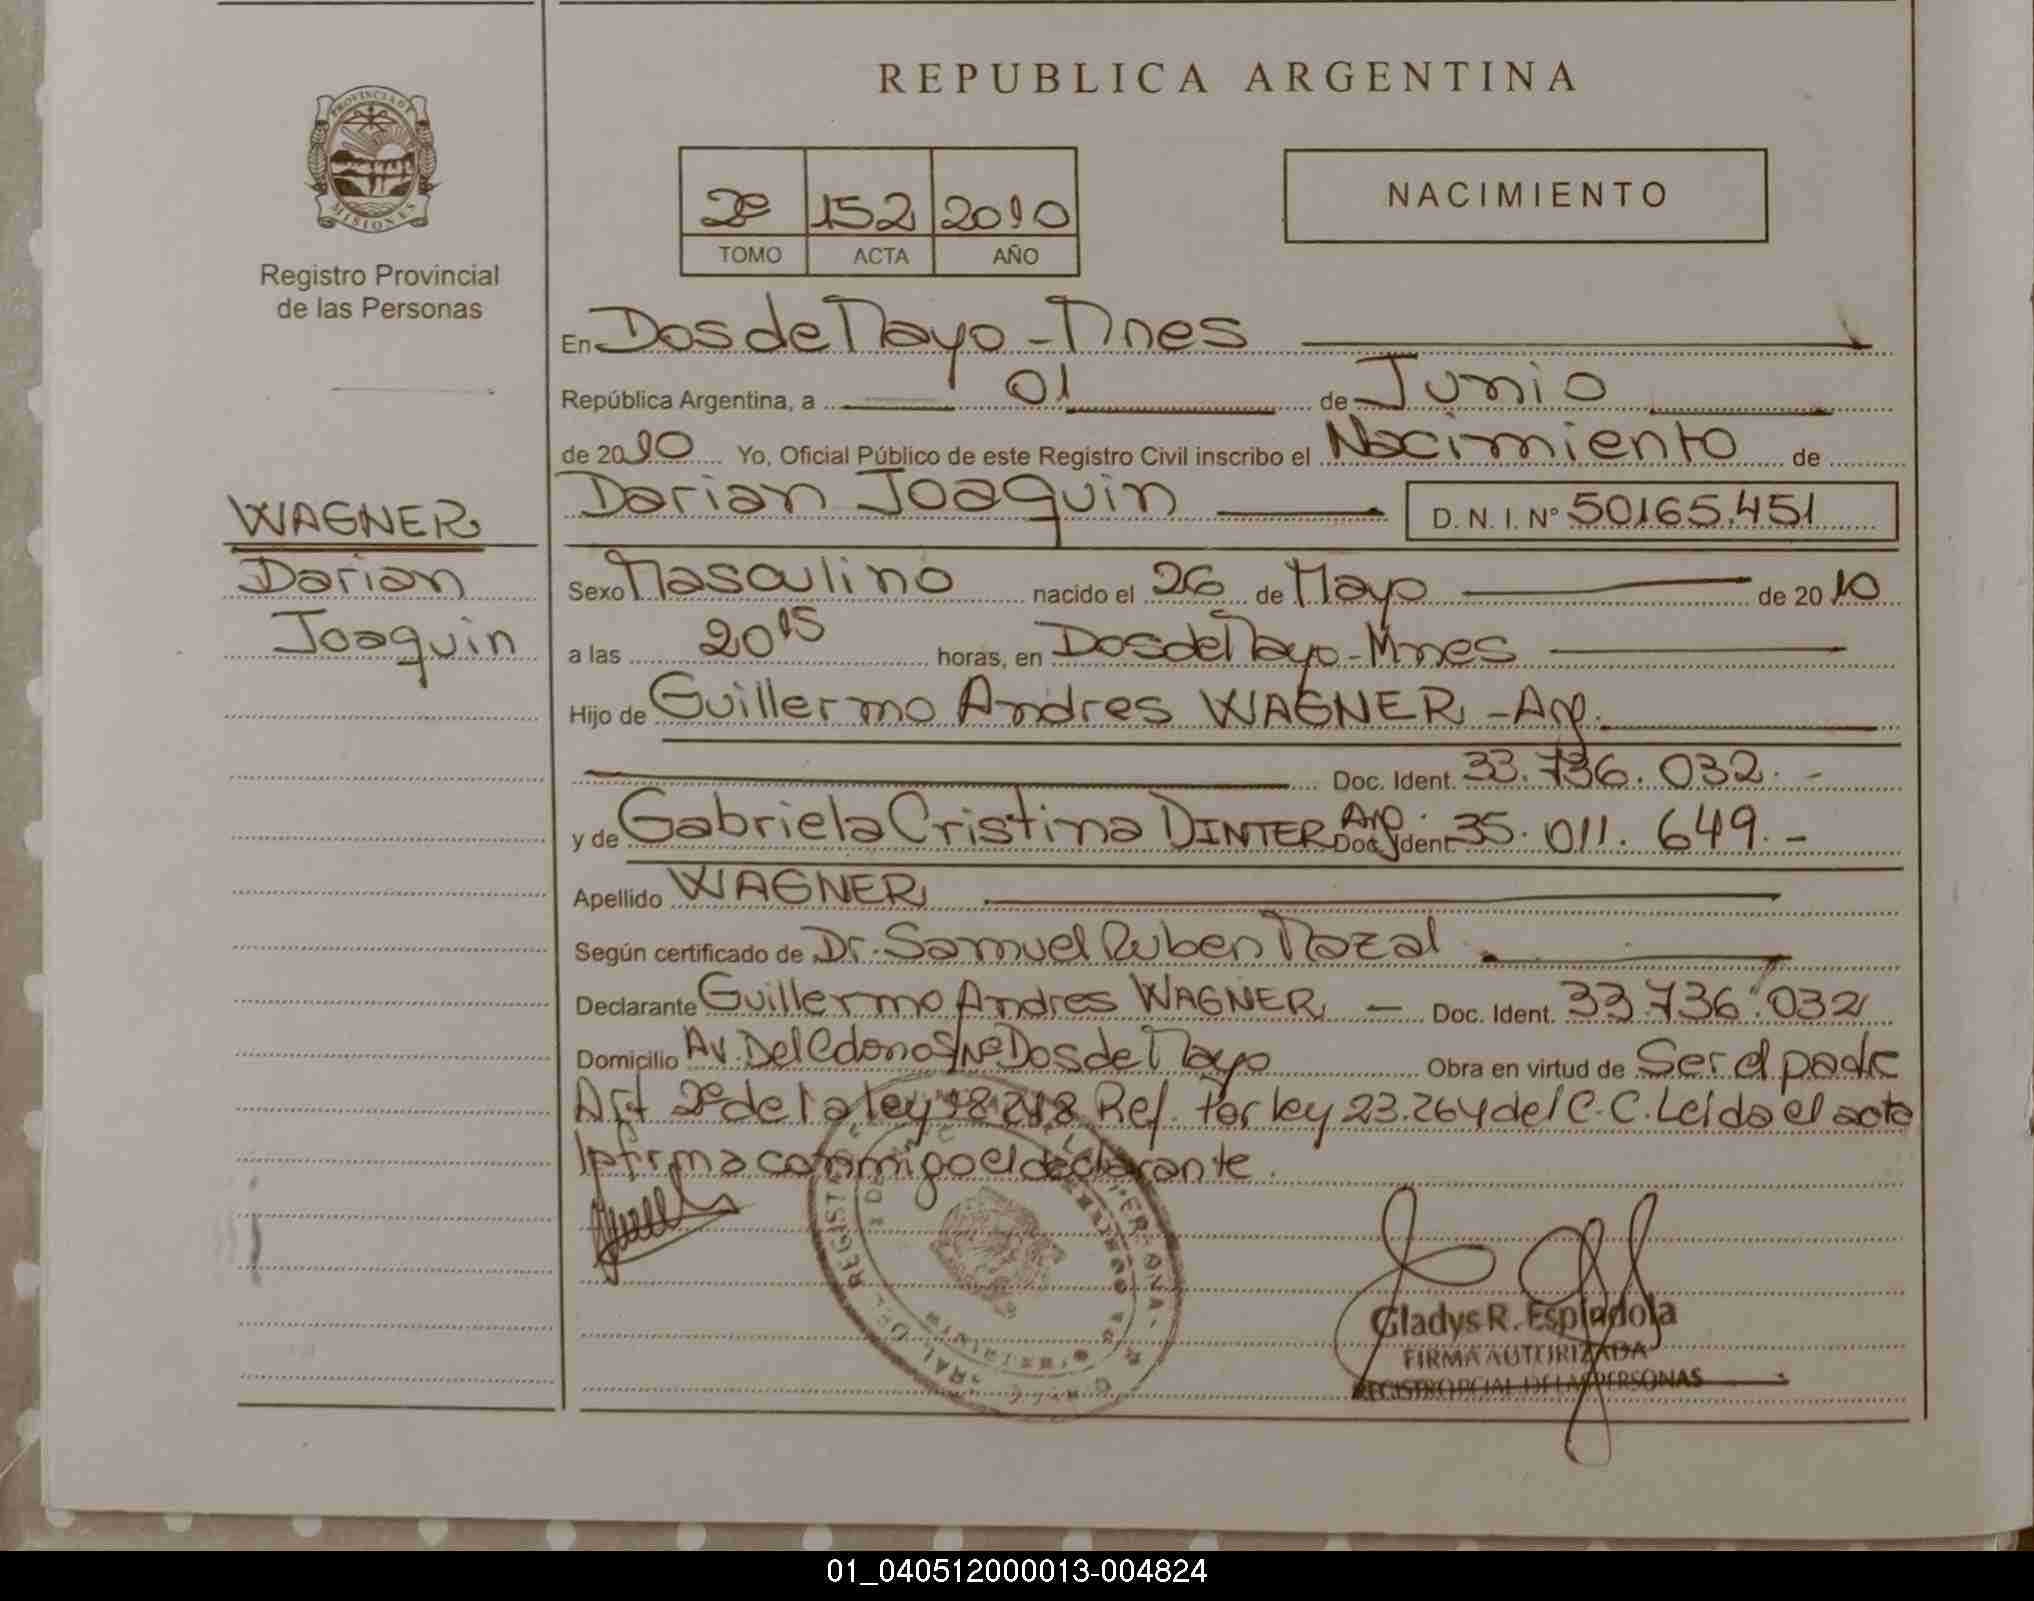 REPUBLICA ARGENTINA
PROVINCIA DE
MISIONES
Registro Provincial
de las Personas
2º 152 2010
TOMO ACTA AÑO
NACIMIENTO
En Dos de Mayo - Mnes
República Argentina, a 01 de Junio
de 2010 Yo, Oficial Público de este Registro Civil inscribo el Nacimiento de
Darian Joaquin D.N.I. Nº 50165.451
WAGNER
Darian
Joaquin
Sexo Masculino nacido el 26 de Mayo de 2010
a las 20 15 horas, en Dos de Mayo - Mnes
Hijo de Guillermo Andres WAGNER - Arg.
Doc. Ident. 33.736.032.-
y de Gabriela Cristina DINTER Arg. Doc. Ident 35.011.649.-
Apellido WAGNER
Según certificado de Dr. Samuel Ruben Mazal
Declarante Guillermo Andres WAGNER - Doc. Ident. 33.736.032
Domicilio Av. Del Colono S/Nº Dos de Mayo Obra en virtud de Ser el padre
Art 2º de la ley 18248 Ref. Por ley 23.264 del C.C. Leida el acta
la firma conmigo el declarante.
Gladys R. Espindola
FIRMA AUTORIZADA
REGISTRO PCIAL DE LAS PERSONAS
01_040512000013-004824